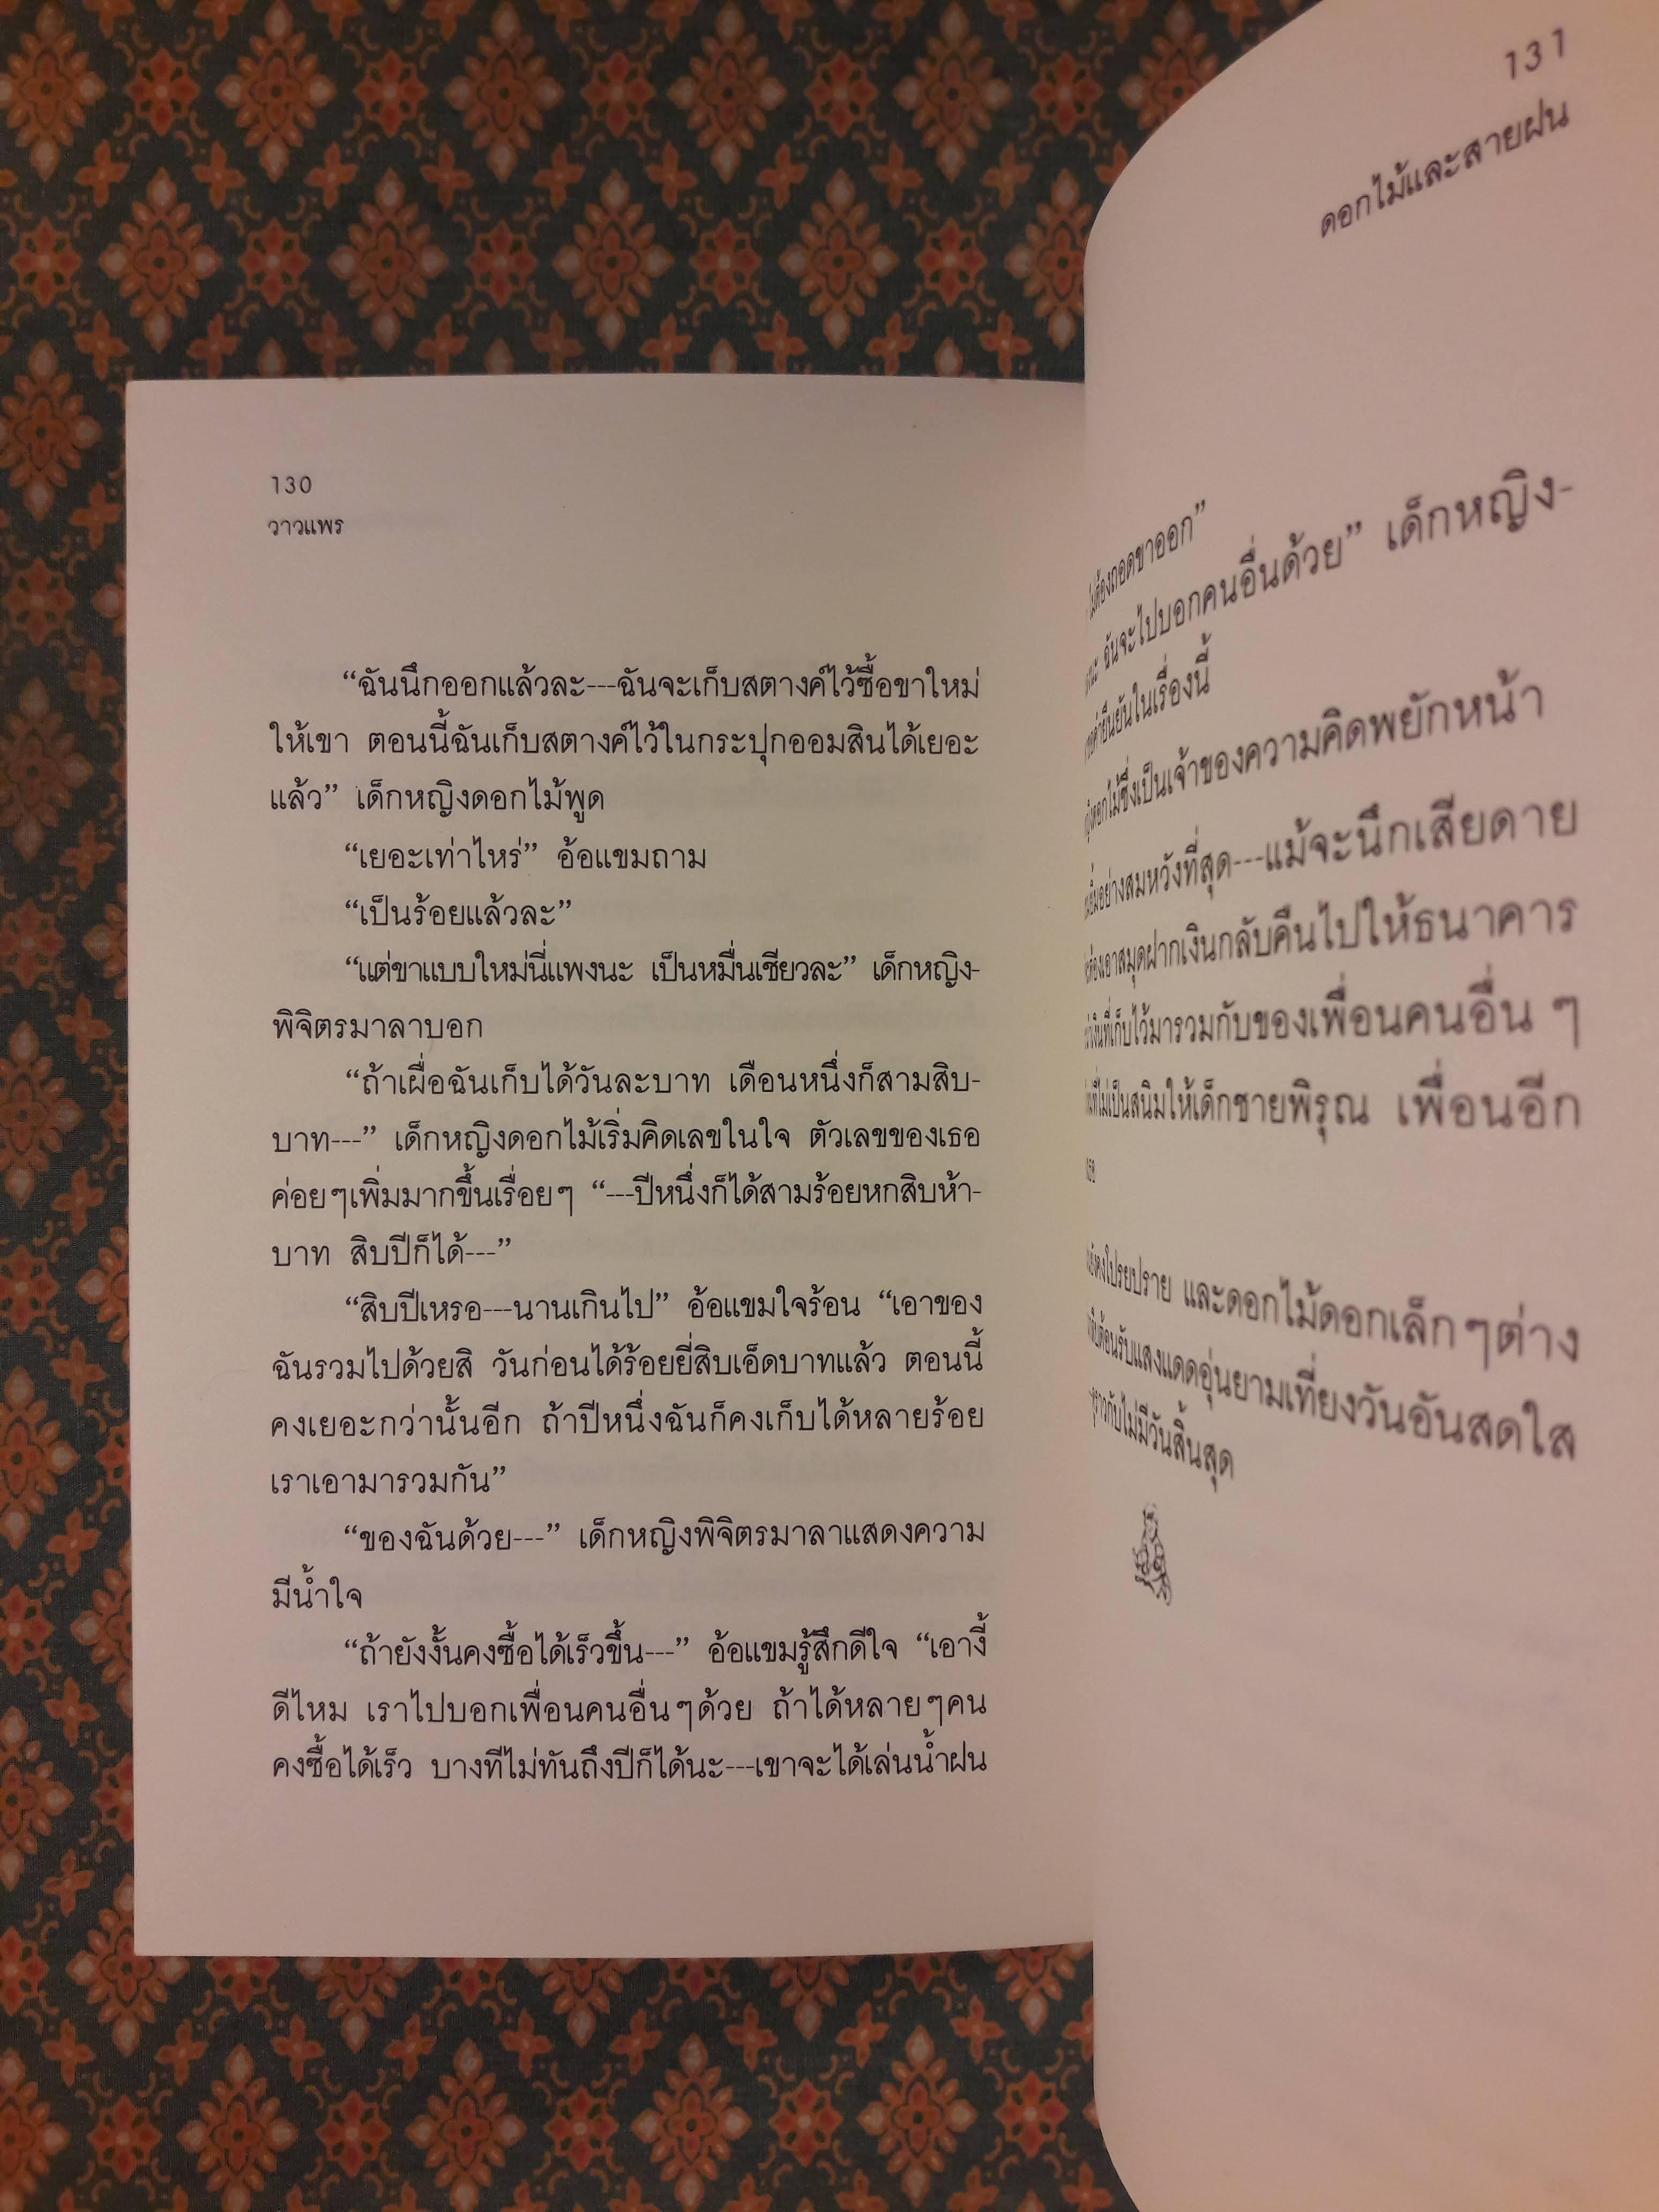 130
วาวแพร
“ฉันนึกออกแล้วละ---ฉันจะเก็บสตางค์ไว้ซื้อขาใหม่
ให้เขา ตอนนี้ฉันเก็บสตางค์ไว้ในกระปุกออมสินได้เยอะ
แล้ว” เด็กหญิงดอกไม้พูด
“เยอะเท่าไหร่” อ้อแขมถาม
“เป็นร้อยแล้วละ”
“แต่ขาแบบใหม่นี่แพงนะ เป็นหมื่นเชียวละ” เด็กหญิง-
พิจิตรมาลาบอก
“ถ้าเผื่อฉันเก็บได้วันละบาท เดือนหนึ่งก็สามสิบ-
บาท---” เด็กหญิงดอกไม้เริ่มคิดเลขในใจ ตัวเลขของเธอ
ค่อยๆเพิ่มมากขึ้นเรื่อยๆ “---ปีหนึ่งก็ได้สามร้อยหกสิบห้า-
บาท สิบปีก็ได้---”
“สิบปีเหรอ---นานเกินไป” อ้อแขมใจร้อน “เอาของ
ฉันรวมไปด้วยสิ วันก่อนได้ร้อยยี่สิบเอ็ดบาทแล้ว ตอนนี้
คงเยอะกว่านั้นอีก ถ้าปีหนึ่งฉันก็คงเก็บได้หลายร้อย
เราเอามารวมกัน”
“ของฉันด้วย---” เด็กหญิงพิจิตรมาลาแสดงความ
มีน้ำใจ
“ถ้ายังงั้นคงซื้อได้เร็วขึ้น---” อ้อแขมรู้สึกดีใจ “เอางี้
ดีไหม เราไปบอกเพื่อนคนอื่นๆด้วย ถ้าได้หลายๆคน
คงซื้อได้เร็ว บางทีไม่ทันถึงปีก็ได้นะ---เขาจะได้เล่นน้ำฝน
131
ดอกไม้และสายฝน
ไม่ต้องถอดขาออก”
ฉันจะไปบอกคนอื่นด้วย” เด็กหญิง-
ยืนยันในเรื่องนี้
ดอกไม้ซึ่งเป็นเจ้าของความคิดพยักหน้า
อย่างสมหวังที่สุด---แม้จะนึกเสียดาย
ต้องเอาสมุดฝากเงินกลับคืนไปให้ธนาคาร
เงินที่เก็บไว้มารวมกับของเพื่อนคนอื่น ๆ
ที่ไม่เป็นสนิมให้เด็กชายพิรุณ เพื่อนอีก
โปรยปราย และดอกไม้ดอกเล็กๆต่าง
ต้อนรับแสงแดดอุ่นยามเที่ยงวันอันสดใส
ราวกับไม่มีวันสิ้นสุด